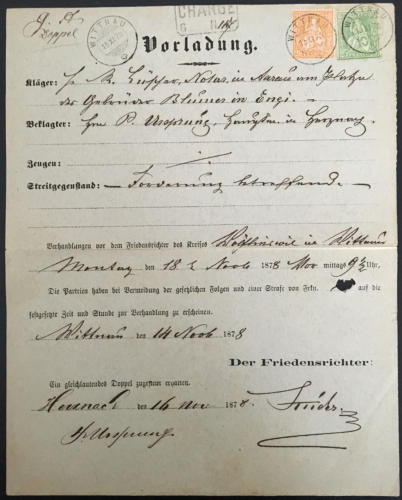 Doppel
WITTNAU
CHARGÉ
WITTNAU
WITTNAU
Vorladung.
Kläger: Hr. M. Lüscher, Notar, in Aarau am Platze
der Gebrüder Blumer in Engi.
Beklagter: Hrn. P. Ursprung, in Herznach.
Zeugen:
Streitgegenstand: Forderung betreffend.
Verhandlungen vor dem Friedensrichter des Kreises Wölflinswil in Wittnau
Montag den 18 t Novb 1878 Vor mittags 9½ Uhr.
Die Parteien haben bei Vermeidung der gesetzlichen Folgen und einer Strafe von Frkn. auf die
festgesetzte Zeit und Stunde zur Verhandlung zu erscheinen.
Wittnau den 14 Novb 1878
Der Friedensrichter:
Ein gleichlautendes Doppel zugestellt erhalten.
Herznach den 16 Nov 1878.
Ursprung